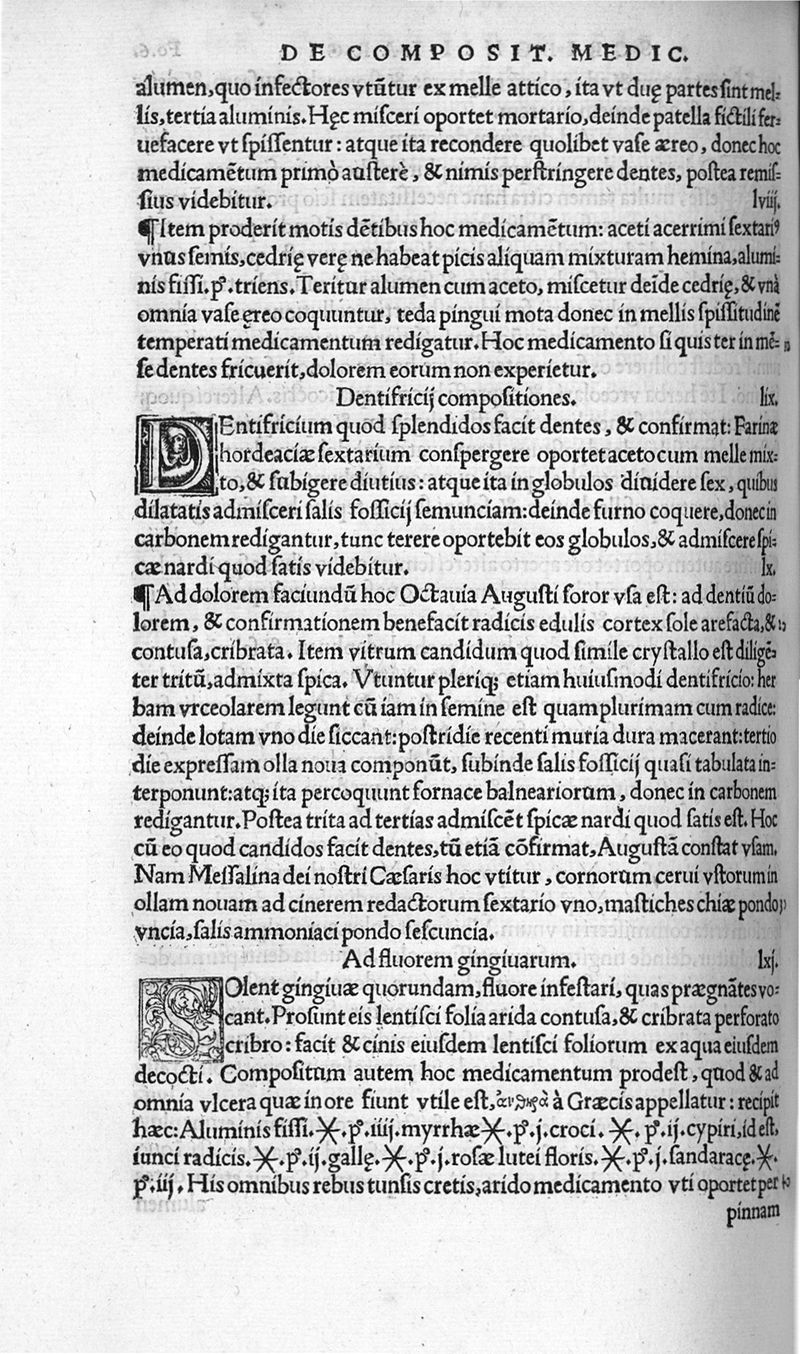 DE COMPOSIT. MEDIC.
alumen, quo infectores vtũtur ex melle attico, ita vt duę partes sint mel-
lis, tertia aluminis. Hęc misceri oportet mortario, deinde patella fictili fer-
uefacere vt spissentur: atque ita recondere quolibet vase æreo, donec hoc
medicamẽtum primò austerè, & nimis perstringere dentes, postea remis-
sius videbitur. lviij.
¶ Item proderit motis dẽtibus hoc medicamẽtum: aceti acerrimi sextariꝰ
vnus semis, cedrię verę ne habeat picis aliquam mixturam hemina, alumi-
nis fissi. p̃. triens. Teritur alumen cum aceto, miscetur deĩde cedrię, & vnà
omnia vase ęreo coquuntur, teda pingui mota donec in mellis spissitudinẽ
temperati medicamentum redigatur. Hoc medicamento si quis ter in mẽ-
se dentes fricuerit, dolorem eorum non experietur.
Dentifricij compositiones. lix.
DEntifricium quod splendidos facit dentes, & confirmat: Farinæ
hordeaciæ sextarium conspergere oportet aceto cum melle mix-
to, & subigere diutius: atque ita in globulos diuidere sex, quibus
dilatatis admisceri salis fossicij semunciam: deinde furno coquere, donec in
carbonem redigantur, tunc terere oportebit eos globulos, & admiscere spi-
cæ nardi quod satis videbitur. lx.
¶ Ad dolorem faciundũ hoc Octauia Augusti soror vsa est: ad dentiũ do-
lorem, & confirmationem benefacit radicis edulis cortex sole arefacta, &
contusa, cribrata. Item vitrum candidum quod simile crystallo est diligẽ-
ter tritũ, admixta spica. Vtuntur pleriq; etiam huiusmodi dentifricio: her
bam vrceolarem legunt cũ iam in semine est quamplurimam cum radice:
deinde lotam vno die siccant: postridie recenti muria dura macerant: tertio
die expressam olla noua componũt, subinde salis fossicij quasi tabulata in-
terponunt: atq; ita percoquunt fornace balneariorum, donec in carbonem
redigantur. Postea trita ad tertias admiscẽt spicæ nardi quod satis est. Hoc
cũ eo quod candidos facit dentes, tũ etiã cõfirmat, Augustã constat vsam.
Nam Messalina dei nostri Cæsaris hoc vtitur, cornorum cerui vstorum in
ollam nouam ad cinerem redactorum sextario vno, mastiches chiæ pondo
vncia, salis ammoniaci pondo sescuncia.
Ad fluorem gingiuarum. lxj.
SOlent gingiuæ quorundam, fluore infestari, quas prægnãtes vo-
cant. Prosunt eis lentisci folia arida contusa, & cribrata perforato
cribro: facit & cinis eiusdem lentisci foliorum ex aqua eiusdem
decocti. Compositum autem hoc medicamentum prodest, quod & ad
omnia vlcera quæ in ore fiunt vtile est, à Græcis appellatur: recipit
hæc: Aluminis fissi. X. p̃. iiij. myrrhæ X. p̃. j. croci. X. p̃. ij. cypiri, id est,
iunci radicis. X. p̃. ij. gallę. X. p̃. j. rosæ lutei floris. X. p̃. j. sandaracę. X.
p̃. iij. His omnibus rebus tunsis cretis, arido medicamento vti oportet per
pinnam